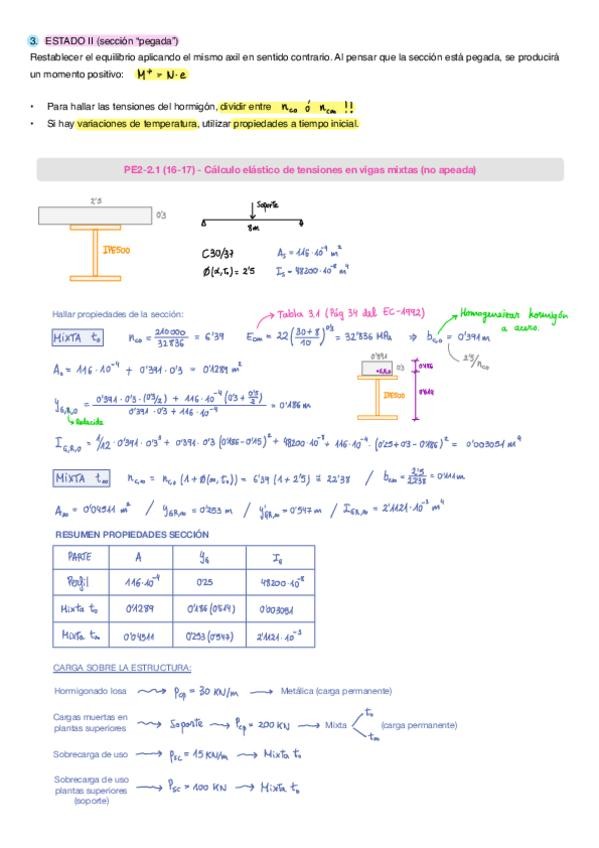 3. ESTADO II (sección "pegada")
Restablecer el equilibrio aplicando el mismo axil en sentido contrario. Al pensar que la sección está pegada, se producirá
un momento positivo: M⁺ = N·e
• Para hallar las tensiones del hormigón, dividir entre n_co ó n_c∞ !!
• Si hay variaciones de temperatura, utilizar propiedades a tiempo inicial.
PE2-2.1 (16-17) - Cálculo elástico de tensiones en vigas mixtas (no apeada)
2'5
0'3
IPE500
Soporte
8m
C30/37
Ø(∞,t₀) = 2'5
A_s = 116·10⁻⁴ m²
I_s = 48200·10⁻⁸ m⁴
Hallar propiedades de la sección:
Tabla 3.1 (Pág 34 del EC-1992)
Homogeneizar hormigón a acero.
MIXTA t₀
n_co = 210000/32836 = 6'39
E_cm = 22 ((30+8)/10)^0'3 = 32'836 MPa ⇒ b_c,o = 0'391 m
2'5/n_co
A_o = 116·10⁻⁴ + 0'391·0'3 = 0'1289 m²
0'391
0'3
G,R,O
0'186
IPE500
0'514
y_G,R,O = (0'391·0'3·(0'3/2) + 116·10⁻⁴ (0'3 + 0'5/2)) / (0'391·0'3 + 116·10⁻⁴) = 0'186 m
Reducida
I_G,R,O = 1/12·0'391·0'3³ + 0'391·0'3 (0'186-0'15)² + 48200·10⁻⁸ + 116·10⁻⁴·(0'25+0'3-0'186)² = 0'003051 m⁴
MIXTA t∞
n_c,∞ = n_c,o (1+Ø(∞,t₀)) = 6'39 (1+2'5) ≅ 22'38 / b_c∞ = 2'5/22'38 = 0'111 m
A∞ = 0'04511 m² / y_GR,∞ = 0'253 m / y'_GR,∞ = 0'547 m / I_GR,∞ = 2'1121·10⁻³ m⁴
RESUMEN PROPIEDADES SECCIÓN
PARTE A y_G I_G
Perfil 116·10⁻⁴ 0'25 48200·10⁻⁸
Mixta t₀ 0'1289 0'186 (0'614) 0'003051
Mixta t∞ 0'04511 0'253 (0'547) 2'1121·10⁻³
CARGA SOBRE LA ESTRUCTURA:
Hormigonado losa P_cp = 30 KN/m Metálica (carga permanente)
Cargas muertas en
plantas superiores Soporte P_cp = 200 KN Mixta t₀ t∞ (carga permanente)
Sobrecarga de uso P_sc = 15 KN/m Mixta t₀
Sobrecarga de uso
plantas superiores
(soporte) P_sc = 100 KN Mixta t₀